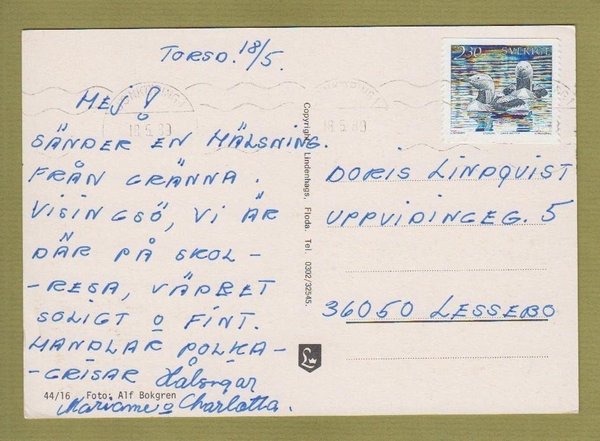 TORSD. 18/5.
HEJ!
SÄNDER EN HÄLSNING.
FRÅN GRÄNNA.
VISINGSÖ, VI ÄR
DÄR PÅ SKOL-
-RESA, VÄDRET
SOLIGT O FINT.
HANDLAR POLKA-
-GRISAR Hälsngar
Marianne o Charlotta.
44/16 Foto: Alf Bokgren
Copyright Lindenhags, Floda. Tel. 0302/32545.
L
18.5.89
18.5.89
2.30 SVERIGE
DORIS LINDQVIST
UPPVIDINGEG. 5
36050 LESSEBO